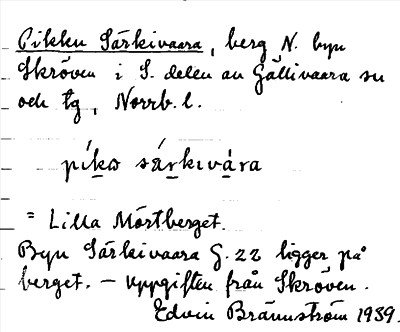 Pikku Särkivaara, berg N. byn
Skröven i S. delen av Gällivaara sn
och tg, Norrb. l.
píkɷ särkıvára
= Lilla Mörtberget.
Byn Särkivaara G. 22 ligger på
berget. – Uppgiften från Skröven.
Edvin Brännström 1939.